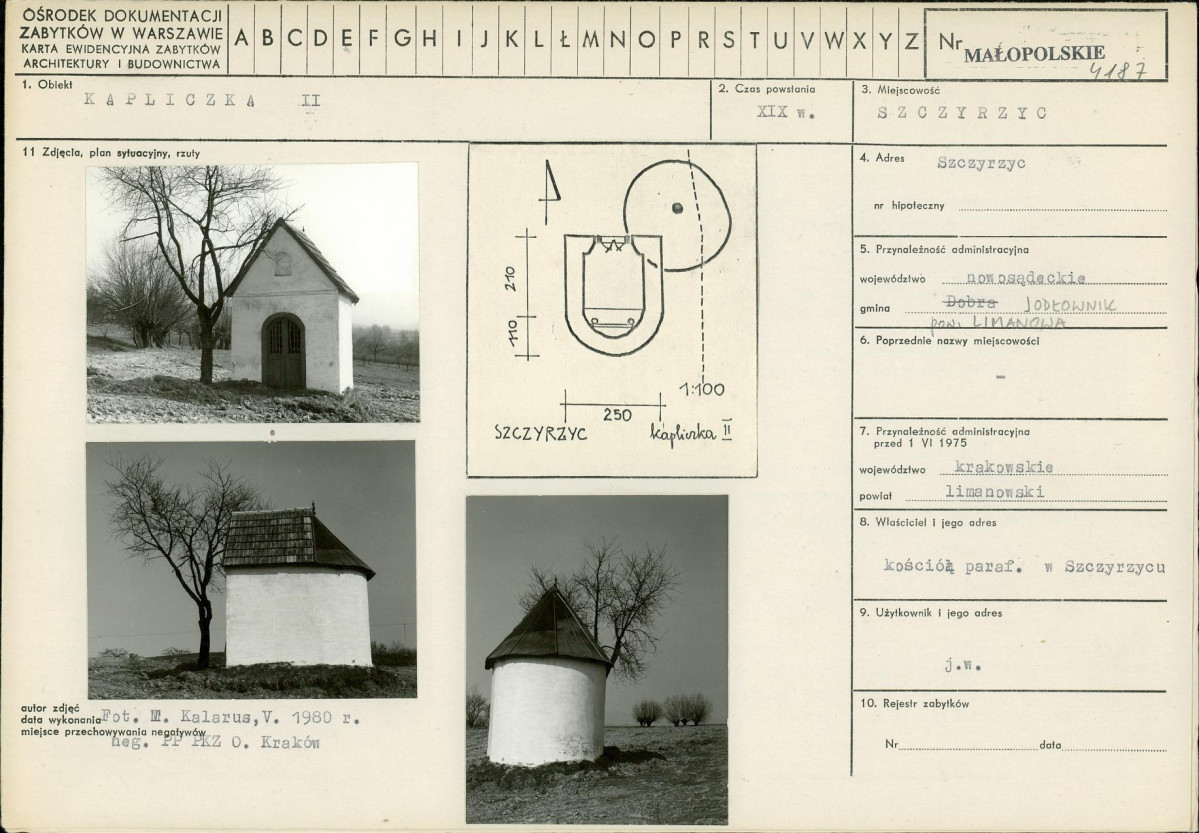 OŚRODEK DOKUMENTACJI
ZABYTKÓW W WARSZAWIE
KARTA EWIDENCYJNA ZABYTKÓW
ARCHITEKTURY I BUDOWNICTWA
A B C D E F G H I J K L Ł M N O P R S T U V W X Y Z
Nr MAŁOPOLSKIE
4187
1. Obiekt
KAPLICZKA II
2. Czas powstania
XIX w.
3. Miejscowość
SZCZYRZYC
11 Zdjęcia, plan sytuacyjny, rzuty
210
110
250
1:100
SZCZYRZYC kapliczka II
autor zdjęć
data wykonania Fot. M. Kalarus, V. 1980 r.
miejsce przechowywania negatywów
neg. PP PKZ O. Kraków
4. Adres Szczyrzyc
nr hipoteczny
5. Przynależność administracyjna
województwo nowosądeckie
gmina Dobra JODŁOWNIK
pow. LIMANOWA
6. Poprzednie nazwy miejscowości
-
7. Przynależność administracyjna
przed 1 VI 1975
województwo krakowskie
powiat limanowski
8. Właściciel i jego adres
kościół paraf. w Szczyrzycu
9. Użytkownik i jego adres
j.w.
10. Rejestr zabytków
Nr data